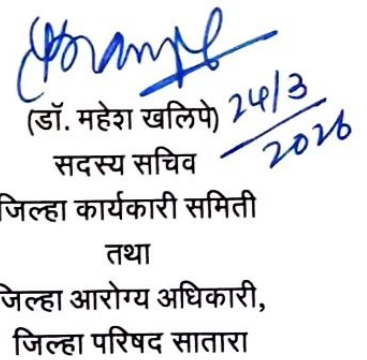 (डॉ. महेश खलिपे) 24/3
2026
सदस्य सचिव
जिल्हा कार्यकारी समिती
तथा
जिल्हा आरोग्य अधिकारी,
जिल्हा परिषद सातारा